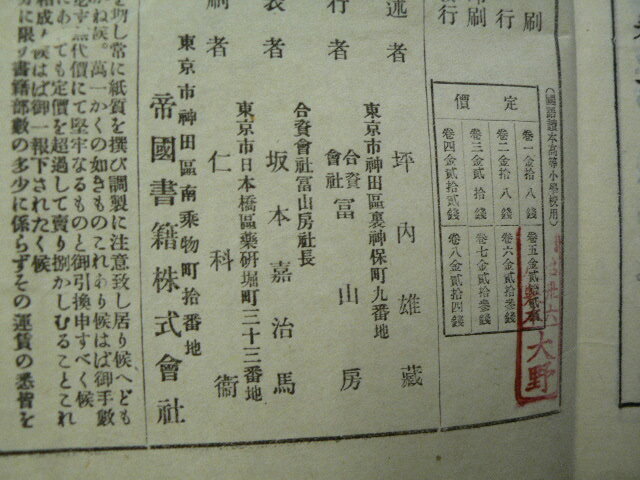 刷
行
印刷
行
(國語讀本高等小學校用)
定價
卷一金拾八錢
卷二金拾八錢
卷三金貳拾錢
卷四金貳拾貳錢
卷六金貳拾參錢
卷七金貳拾參錢
卷八金貳拾四錢
大野
述者 坪內雄藏
東京市神田區裏神保町九番地
行者 合資會社冨山房
合資會社冨山房社長
表者 坂本嘉治馬
東京市日本橋區藥研堀町三十三番地
刷者 仁科衞
東京市神田區南乘物町拾番地
帝國書籍株式會社
を明し常に紙質を撰び調製に注意致し居り候へども
かね候。萬一かくの如きものこれあり候はば御手數
必ず無代價にて堅牢なるものと御引換申すべく候
にあっても定價を超過して賣り捌かしむることこれ
相成り候はば御一報下されたく候
方に限り書籍部數の多少に係らずその運賃の悉皆を